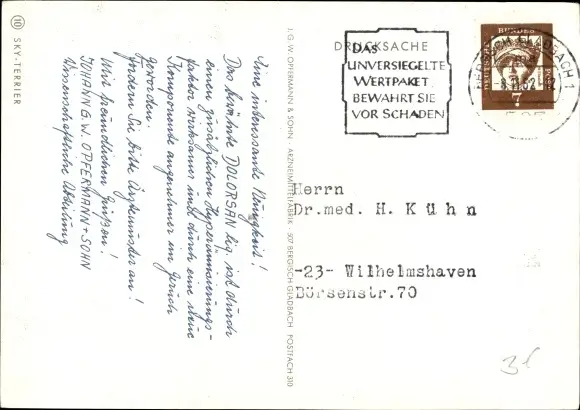 ⑩ SKY-TERRIER
Eine interessante Neuigkeit!
Das bewährte DOLORSAN liq. ist durch
einen zusätzlichen Hyperämisierungs-
faktor wirksamer und durch eine neue
Komponente angenehmer im Geruch
geworden.
Fordern Sie bitte Ärztemuster an!
Mit freundlichen Grüßen!
JOHANN G.W. OPFERMANN + SOHN
Wissenschaftliche Abteilung
J. G. W. OPFERMANN & SOHN · ARZNEIMITTELFABRIK · 507 BERGISCH GLADBACH POSTFACH 310
DRUCKSACHE
DAS
UNVERSIEGELTE
WERTPAKET
BEWAHRT SIE
VOR SCHADEN
DEUTSCHE
BUNDES
POST
7
BERGISCH GLADBACH 1
Herrn
Dr.med. H. Kühn
-23- Wilhelmshaven
Börsenstr.70